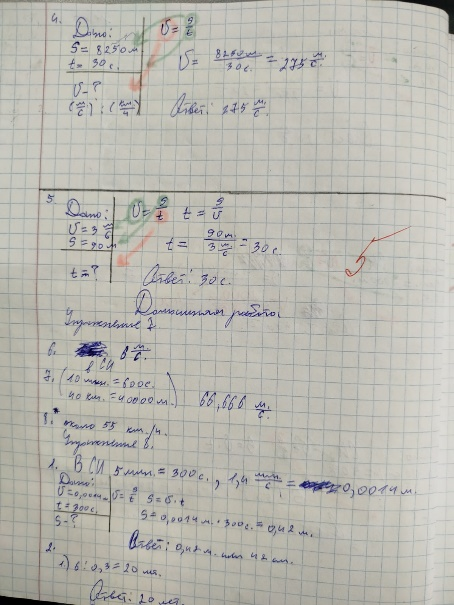 4.
Дано:
S = 8250м
t = 30с.
V - ?
(м/с); (км/ч)
V = S/t
V = 8250м/30с. = 275 м/с.
Ответ: 275 м/с.
5.
Дано:
V = 3 м/с
S = 90м
t = ?
V = S/t t = S/V
t = 90м./3 м/с = 30с.
Ответ: 30с.
5
Домашняя работа.
Упражнение 7.
6. 8 м/с.
в СИ
7. (10 мин. = 600с.
40 км. = 40000м.) 66,666 м/с.
8.* около 55 км./ч.
Упражнение 8.
1. В СИ 5 мин. = 300с., 1,4 мм/с = 0,0014 м.
Дано:
t = 300с.
S - ?
V = S/t S = V·t
S = 0,0014м. · 300с. = 0,42м.
Ответ: 0,42м. или 42 см.
2.
1) 6 : 0,3 = 20 лет.
Ответ: 20 лет.